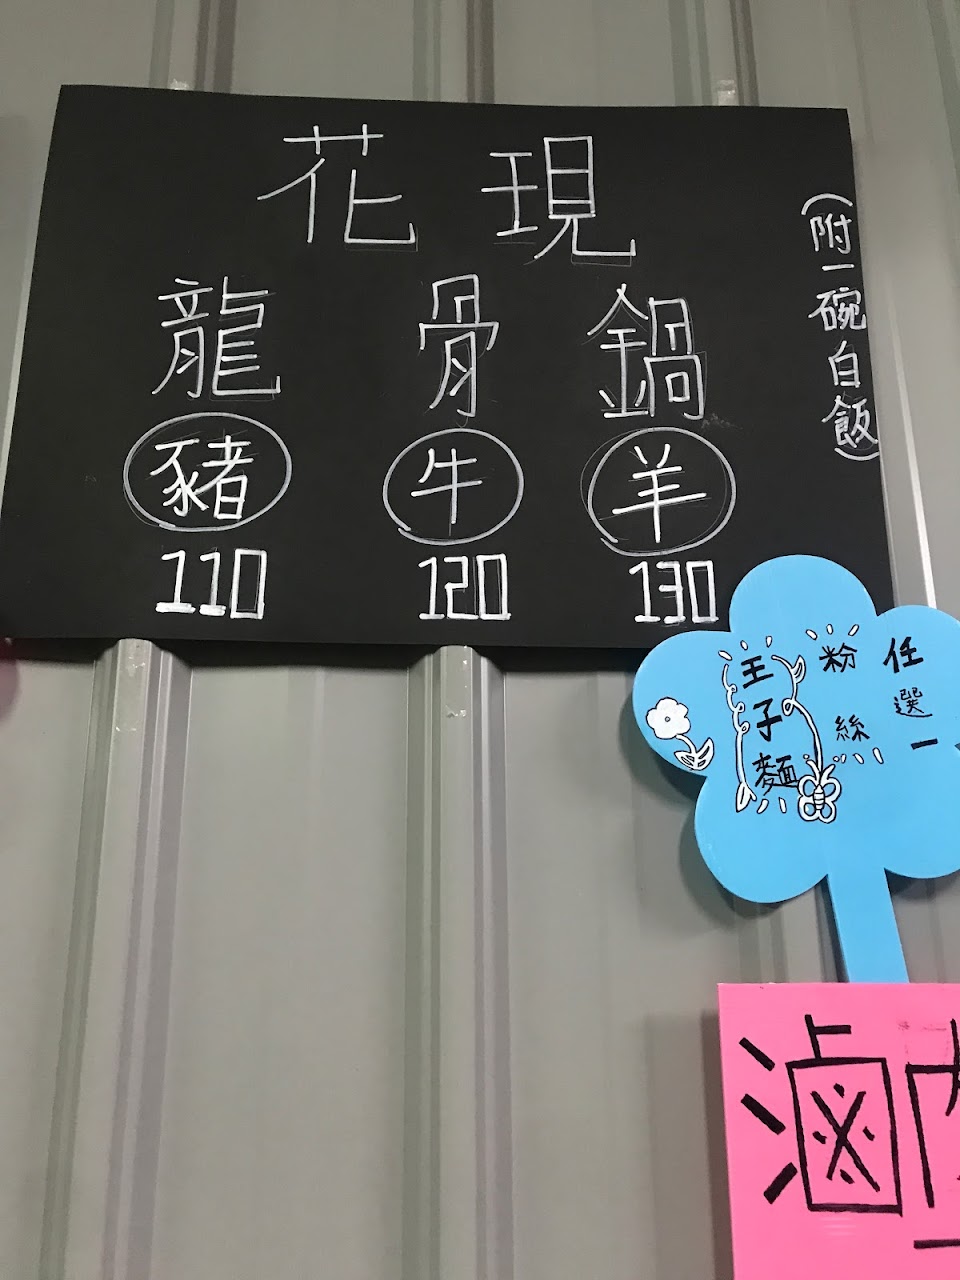 花現
龍骨鍋
豬 牛 羊
110 120 130
(附一碗白飯)
任選一
粉絲
王子麵
滷